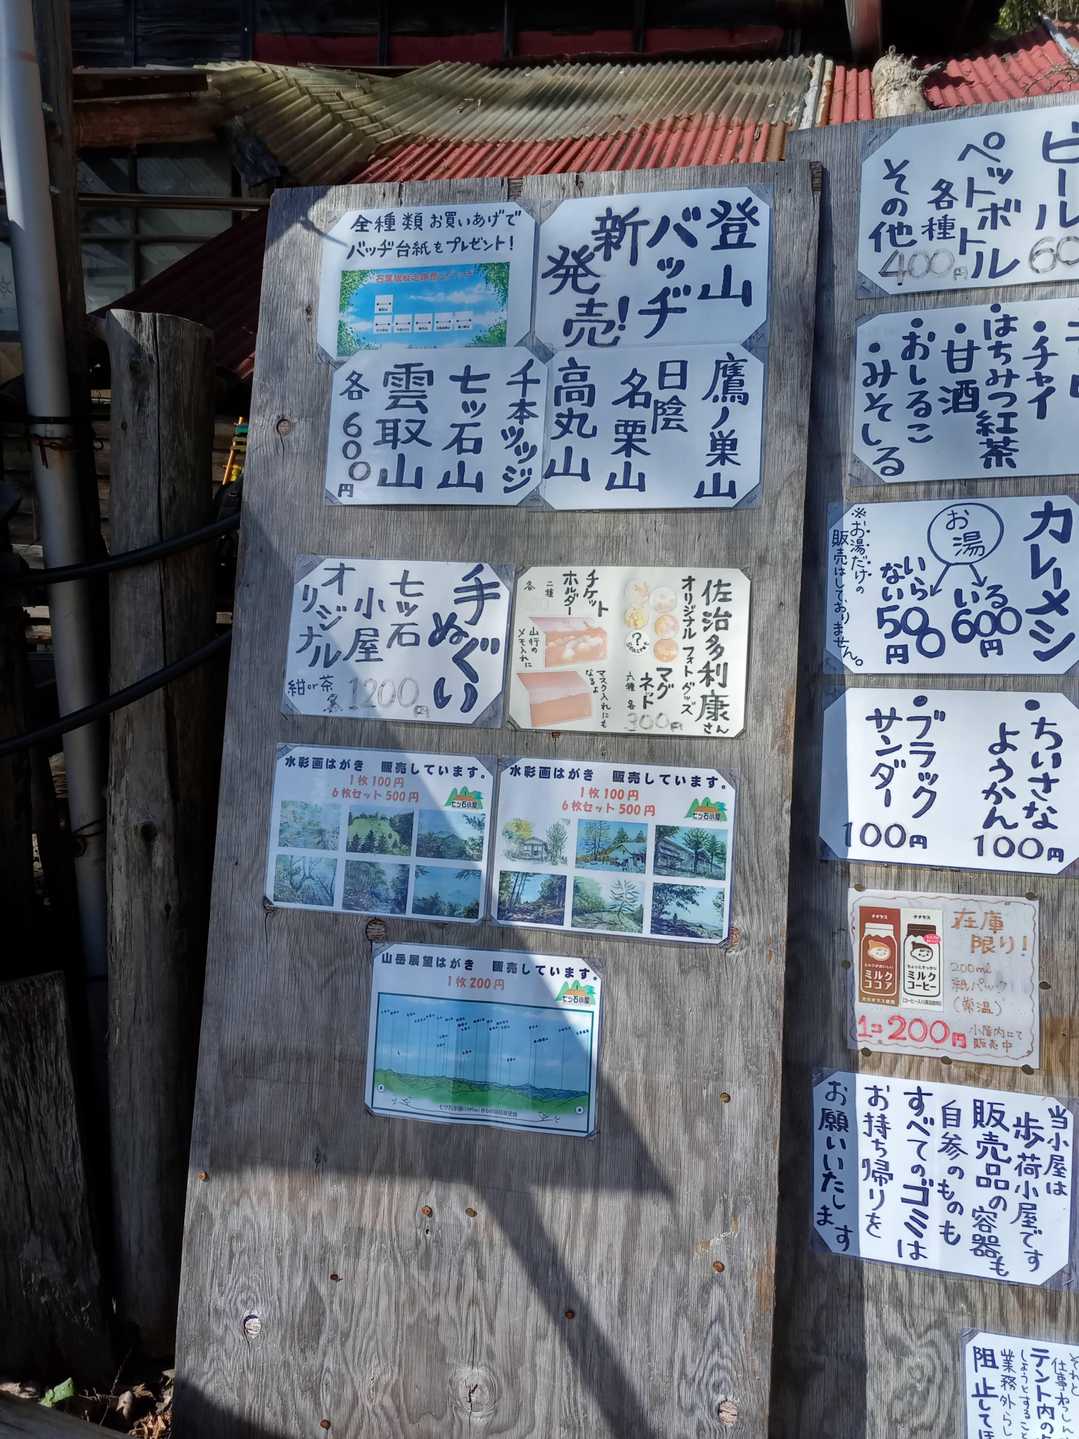 全種類お買いあげで
バッヂ台紙もプレゼント！
登山
バッヂ
新
発売！
鷹ノ巣山
日陰
名栗山
高丸山
千本ツツジ
七ツ石山
雲取山
各600円
手ぬぐい
七ツ石
小屋
オリジナル
紺or茶
1200円
佐治多利康さん
オリジナルフォトグッズ
マグネット
六種各
300円
チケット
ホルダー
二種
各
山行の
メモ入れに
マスク入れにも
なるよ
水彩画はがき 販売しています。
1枚100円
6枚セット500円
七ツ石小屋
水彩画はがき 販売しています。
1枚100円
6枚セット500円
七ツ石小屋
山岳展望はがき 販売しています。
1枚200円
七ツ石小屋
ビール
60
ペットボトル
各種
その他
400円
・チャイ
・はちみつ紅茶
・甘酒
・おしるこ
・みそしる
カレーメシ
お湯
いる
600円
いらない
500円
※お湯だけの
販売はしておりません。
・ちいさな
ようかん
100円
・ブラック
サンダー
100円
在庫
限り！
200ml
紙パック
(常温)
1コ200円
小屋内にて
販売中
ミルク
ココア
ミルク
コーヒー
当小屋は
歩荷小屋です
販売品の容器も
自参のものも
すべてのゴミは
お持ち帰りを
お願いいたします
それと
テント内の
しようとすること
業務外らし
阻止してほ